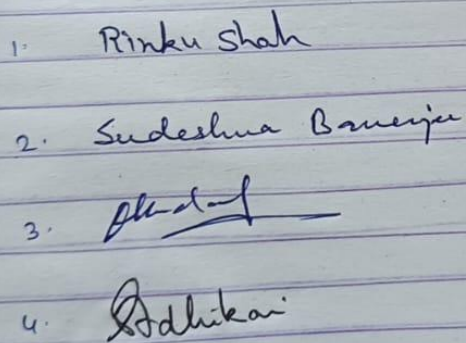 1. Rinku Shah
2. Sudeshna Banerjee
3.
4. Adhikari